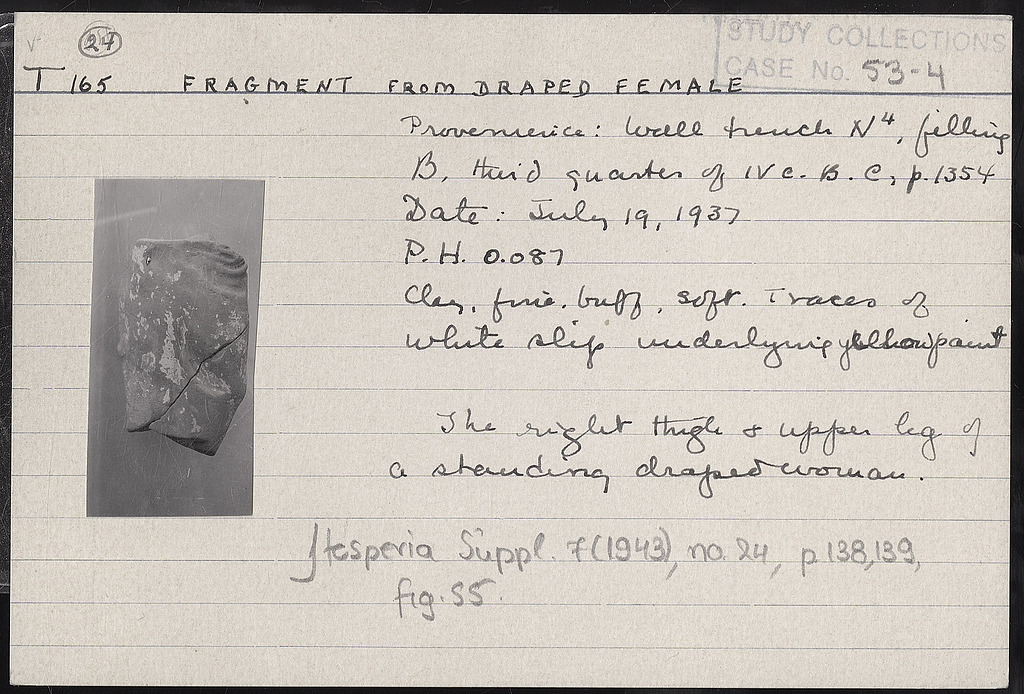 24
STUDY COLLECTIONS
CASE No. 53-4
T 165 FRAGMENT FROM DRAPED FEMALE
Provenience: Wall trench N4, filling
B, third quarter of IV c. B.C, p.1354
Date: July 19, 1937
P.H. 0.087
Clay, fine. buff, soft. Traces of
white slip underlying yellow paint
The right thigh & upper leg of
a standing draped woman.
Hesperia Suppl. 7(1943), no. 24, p.138,139,
fig. 55.